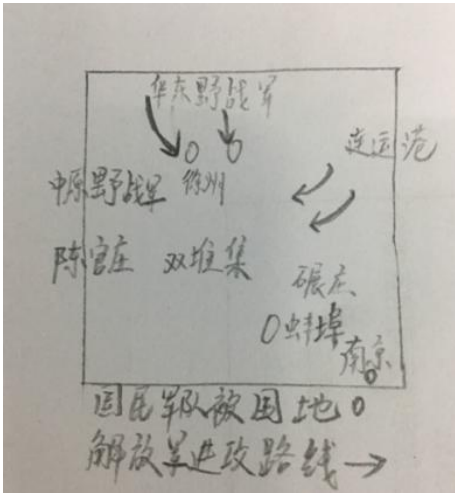 华东野战军
连运港
中原野战军 徐州
陈官庄 双堆集
碾庄
蚌埠
南京
国民军队被围地
解放军进攻路线